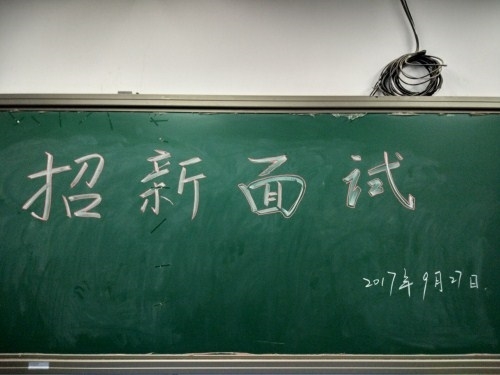 招新面试
2017年9月27日.